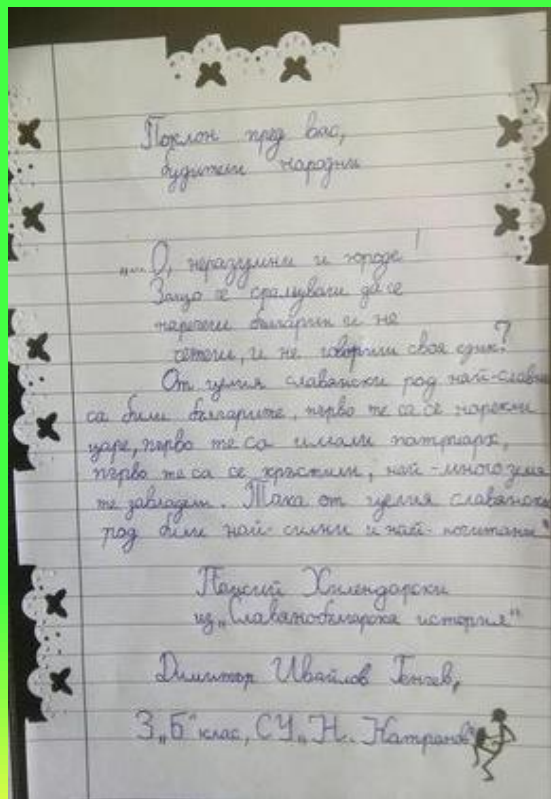 Поклон пред вас,
будители народни
„...О, неразумни и юроде!
Защо се срамуваш да се
наречеш българин и не
четеш, и не говориш своя език?
От целия славянски род най-славни
са били българите, първо те са се нарекли
царе, първо те са имали патриарх,
първо те са се кръстили, най-много земя
те завладели. Така от целия славянски
род били най-силни и най-почитани“
Паисий Хилендарски
из „Славянобългарска история“
Димитър Ивайлов Генчев,
3 „Б“ клас, СУ „Н. Катранов“